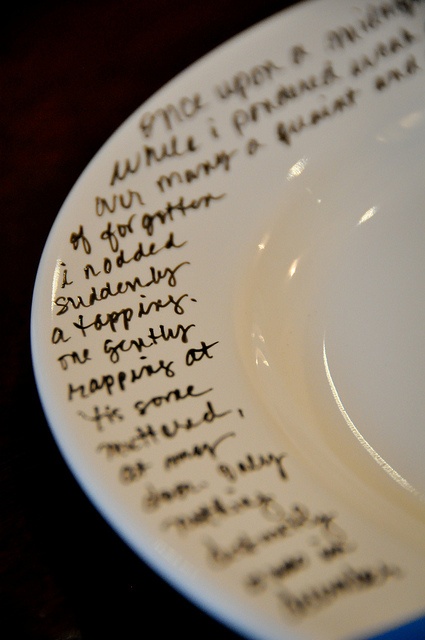 once upon a midnight
while i pondered weak
over many a quaint and
of forgotten
i nodded
suddenly
a tapping.
one gently
rapping at
'tis some
muttered,
at my
door. Only
nothing
distinctly
was in
December